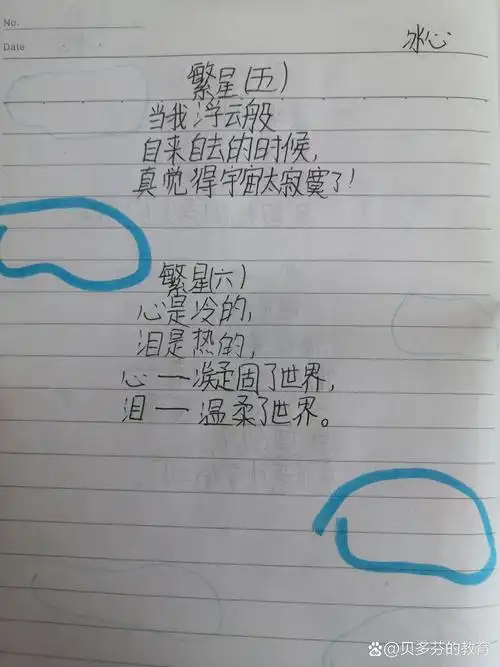 No.
Date
冰心
繁星(五)
当我浮云般
自来自去的时候,
真觉得宇宙太寂寞了!
繁星(六)
心是冷的,
泪是热的,
心一凝固了世界,
泪一温柔了世界。
@贝多芬的教育